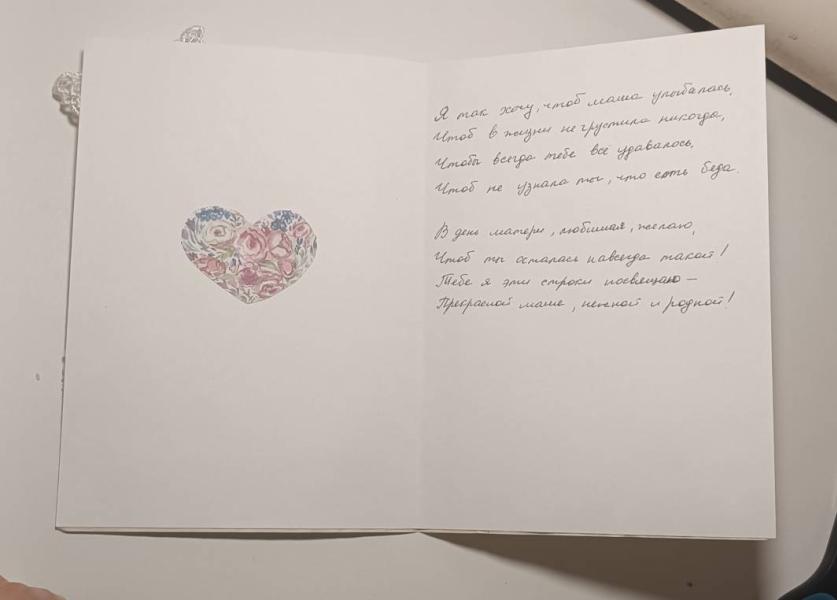 Я так хочу, чтоб мама улыбалась,
Чтоб в жизни не грустила никогда,
Чтобы всегда тебе всё удавалось,
Чтоб не узнала ты, что есть беда.
В день матери, любимая, желаю,
Чтоб ты осталась навсегда такой!
Тебе я эти строки посвящаю —
Прекрасной маме, нежной и родной!